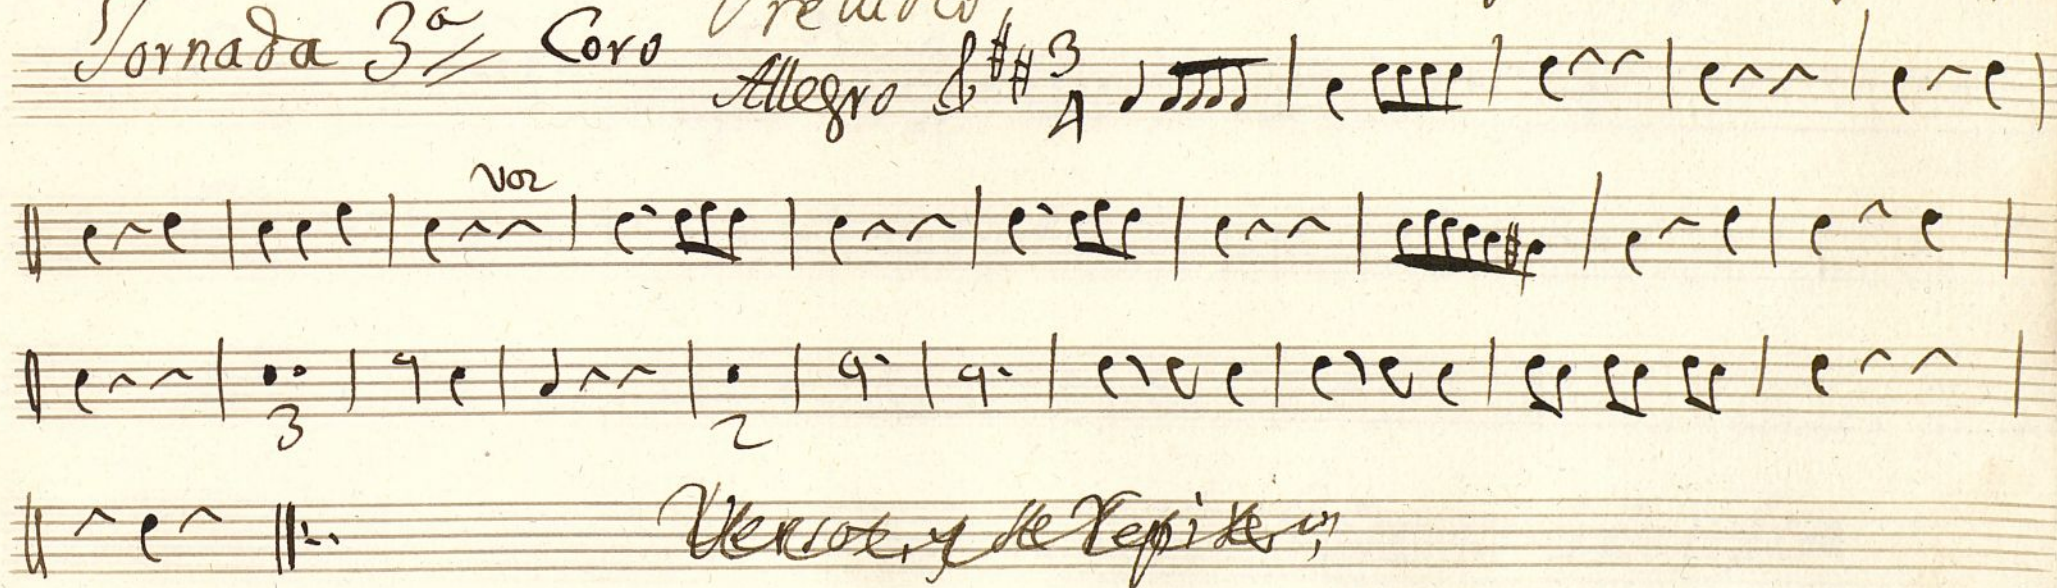 Jornada 3ª Coro
Allegro 3 4
Voz
3 2
Versos, y se Repite